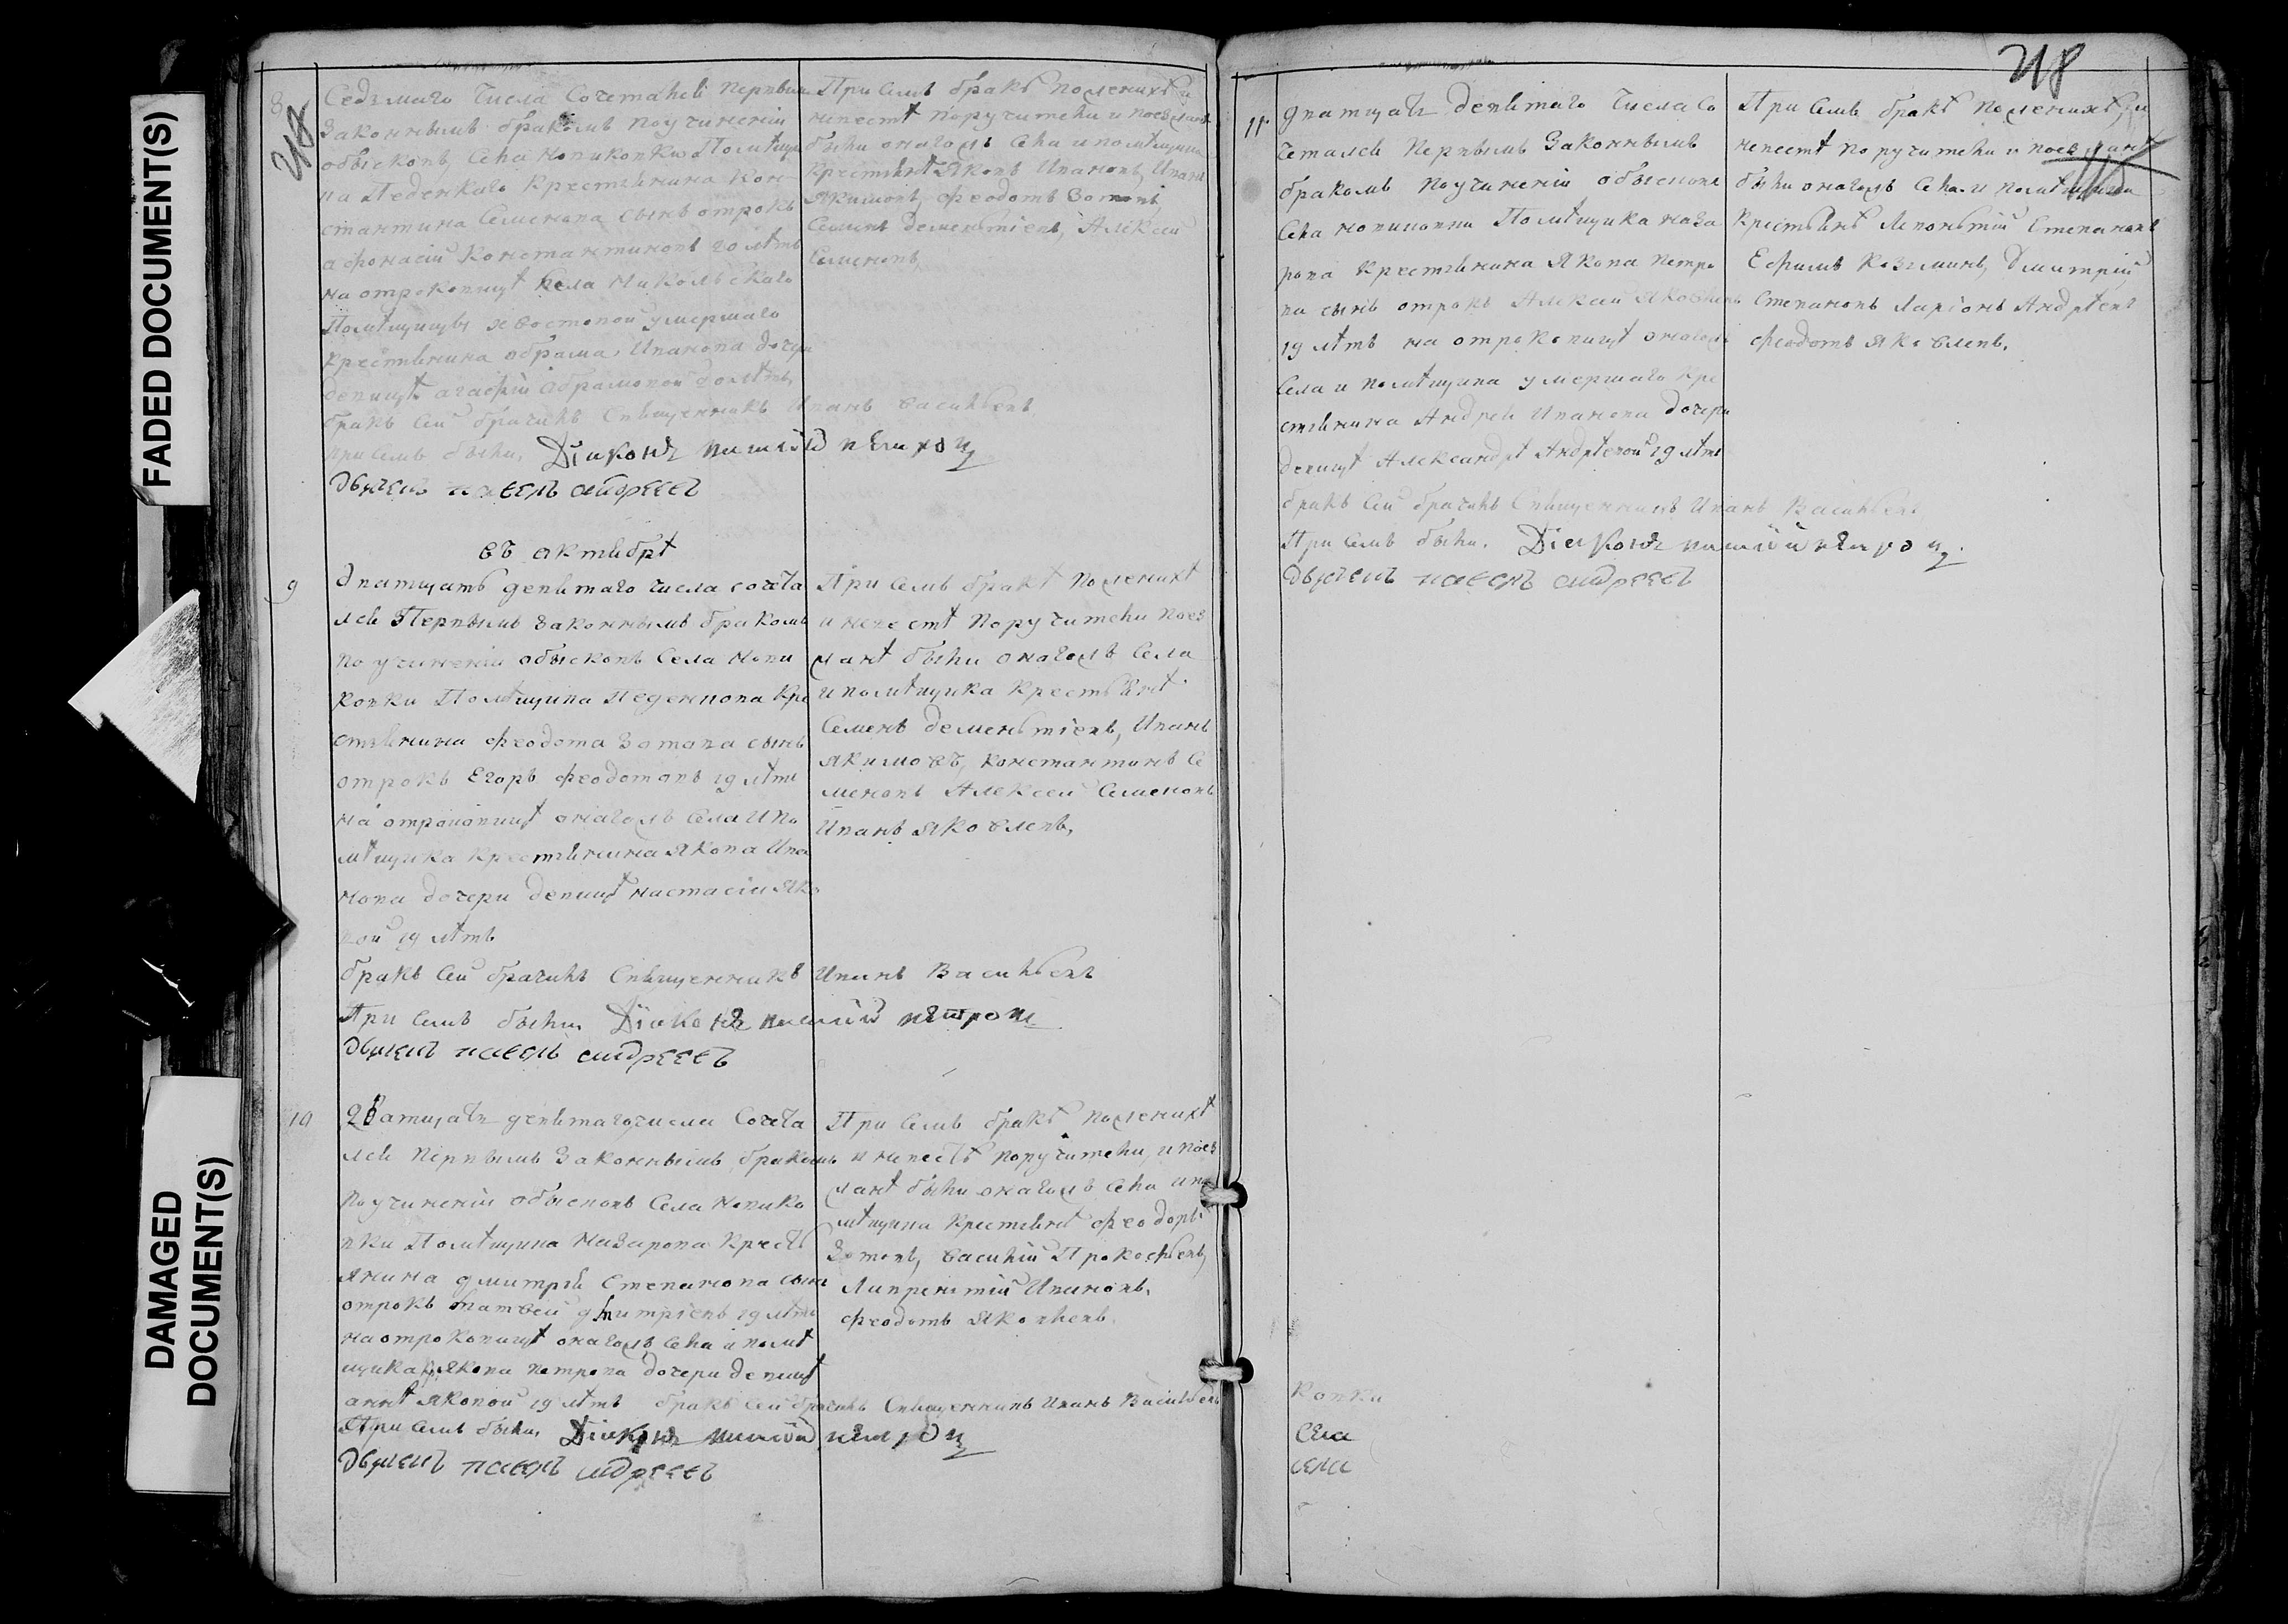 FADED DOCUMENT(S)
DAMAGED DOCUMENT(S)
8
Седьмаго числа Сочетался первымъ
Законнымъ бракомъ по учиненіи
обысковъ, села Новиковки Помѣщи
крестьянина Кон
стантина Семенова сынъ отрокъ
афонасій Константиновъ 20 лѣтъ
на отроковицѣ села Никольскаго
Помѣщицы умершаго
крестьянина абрама Иванова дочери
девицѣ агафіи абрамовой лѣтъ,
бракъ сей брачилъ Священникъ Иванъ васильевъ
при семъ были, Діаконъ
дьячекъ павелъ андреевъ
При семъ бракѣ по женихѣ и
невестѣ поручители и поезжанѣ
были онагожъ села и помѣщика
крестьянѣ Яковъ Ивановъ, Иванъ
Якимовъ, феодотъ Зотовъ
Семенъ дементіевъ, Алексей
Семеновъ,
въ октябрѣ
9
дватцать девятаго числа сочета
лся Первымъ законнымъ бракомъ
по учиненіи обысковъ села Нови
ковки Помѣщика Кре
стьянина феодота Зотова сынъ
отрокъ Егоръ феодотовъ 19 лѣтъ
на отроковицѣ онагожъ села и по
мѣщика крестьянина Якова Ива
нова дочери девицѣ настасіи Яко
вой 19 лѣтъ
бракъ сей брачилъ Священникъ Иванъ Васильевъ
При семъ были Діаконъ петровъ
дьячекъ павелъ андреевъ
При семъ бракѣ по женихѣ
и невестѣ поручители поез
жанѣ были онагожъ села
и помѣщика крестьянѣ
Семенъ дементіевъ, Иванъ
Якимовъ, константинъ Се
меновъ Алексей Семеновъ
Иванъ Яковлевъ,
10
Дватцать девятаго числа Сочета
лся первымъ Законнымъ бракомъ
по учиненіи обысковъ села Новико
вки Помѣщика Назарова кресть
янина дмитрія Степанова сынъ
отрокъ матвей дмитріевъ 19 лѣтъ
на отроковицѣ онагожъ села и помѣ
щика Якова петрова дочери девицѣ
аннѣ Яковой 19 лѣтъ бракъ сей брачилъ Священникъ Иванъ Васильевъ
При семъ были, Діаконъ
дьячекъ павелъ андреевъ
При семъ бракѣ по женихѣ
и невестѣ поручители, и поез
жанѣ были онагожъ села и по
мѣщика крестьянѣ феодоръ
Зотовъ, василій Прокофьевъ,
Лаврентій Ивановъ,
феодотъ Яковлевъ.
11
дватцать девятаго числа Со
четался Первымъ Законнымъ
бракомъ по учиненіи обысковъ
села новиковки Помѣщика наза
рова крестьянина Якова петро
ва сынъ отрокъ Алексей Яковлевъ
19 лѣтъ на отроковицѣ онагожъ
села и помѣщика умершаго кре
стьянина Андрея Иванова дочери
девицѣ Александрѣ Андреевой 19 лѣтъ
бракъ сей брачилъ Священникъ Иванъ Васильевъ
При семъ были. Діаконъ
дьячекъ павелъ андреевъ
При семъ бракѣ по женихѣ, и
невестѣ поручители и поезжанѣ
были онагожъ села и помѣщика
крестьянѣ Леонтій Степановъ
Ефимъ Козминъ, Дмитрій
Степановъ Ларіонъ Андреевъ
феодотъ Яковлевъ.
ковки
села
села